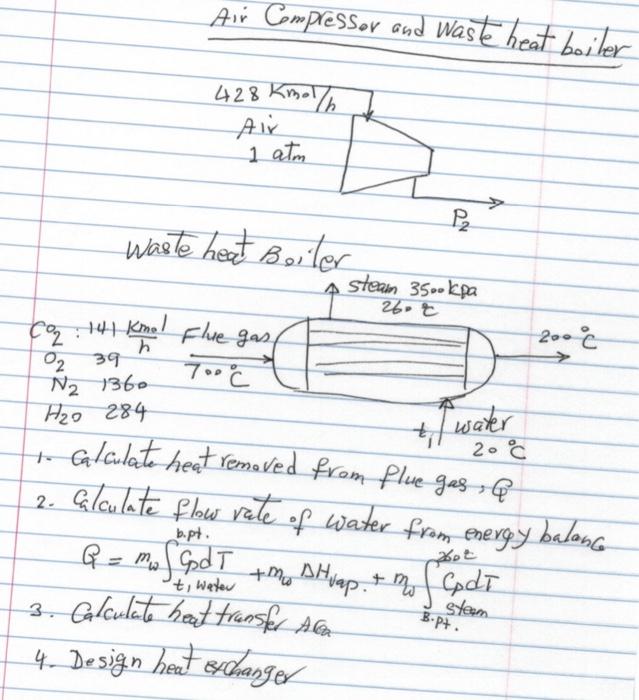 Air Compressor and Waste heat boiler
428 Kmol/h
Air
1 atm
P2
Waste heat Boiler
steam 3500 kpa
260 °C
CO2 : 141 Kmol/h Flue gas
O2 39
700 °C
200 °C
N2 1360
H2O 284
t1 water
20 °C
1. Calculate heat removed from flue gas, Q
2. Calculate flow rate of water from energy balance
Q = mw ∫t1, water b.pt. CpdT + mw ΔHvap. + mw ∫B.pt. 260 °C CpdT steam
3. Calculate heat transfer Area
4. Design heat exchanger